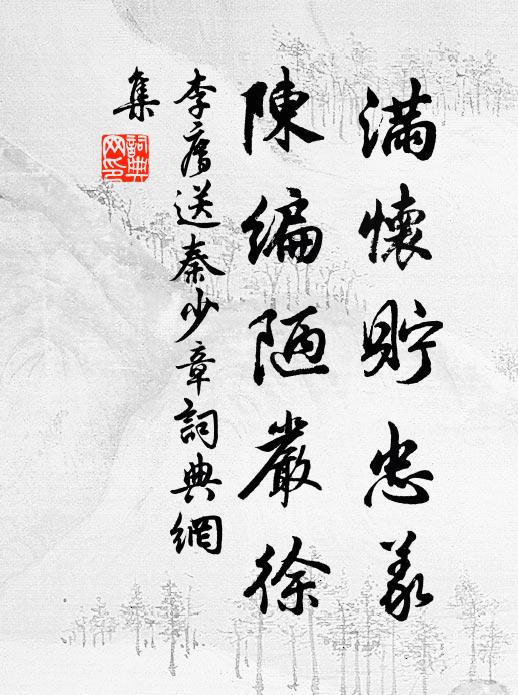 滿懷貯忠義
陳編陋嚴徐
李廌送秦少章詞典網
集
詞典
网印